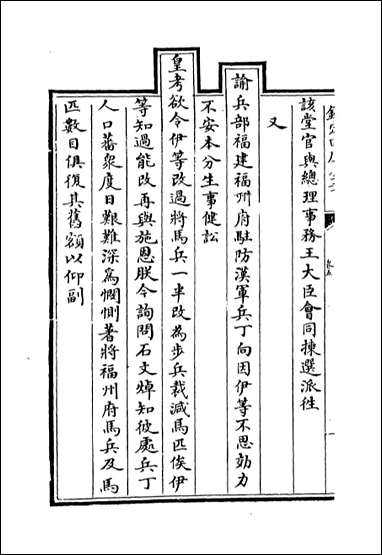 該堂官與總理事務王大臣會同揀選派往
又
諭兵部福建福州府駐防漢軍兵丁向因伊等不思効力
不安本分生事健訟
皇考欲令伊等改過將馬兵一半改為步兵裁減馬匹俟伊
等知過能改再與施恩朕今詢問石文焯知彼處兵丁
人口蕃衆度日艱難深為憫惻著將福州府馬兵及馬
匹數目俱復其舊額以仰副